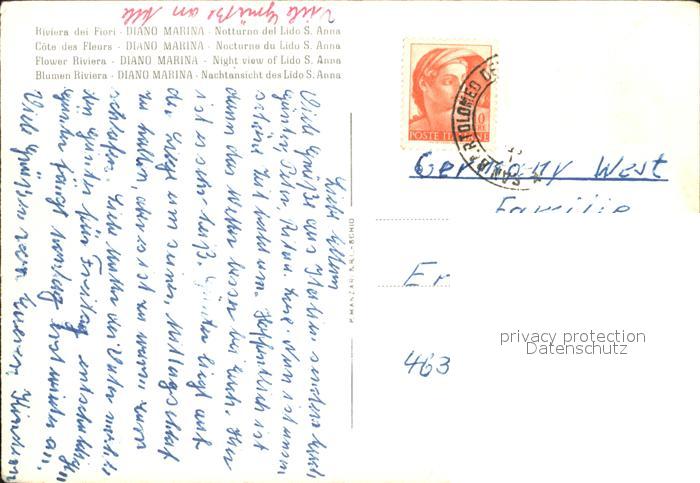 Viele Grüße an Alle
Riviera dei Fiori - DIANO MARINA - Notturno del Lido S. Anna
Côte des Fleurs - DIANO MARINA - Nocturne du Lido S. Anna
Flower Riviera - DIANO MARINA - Night view of Lido S. Anna
Blumen Riviera - DIANO MARINA - Nachtansicht des Lido S. Anna
Liebe Eltern
Viele Grüße aus Italien senden euch
Günter, Peter,
schöne Zeit haben. Hoffentlich ist
dann das Wetter besser bei Euch. Hier
ist es sehr heiß. Günter liegt auf
der Liege um seinen Mittagsschlaf
zu halten, aber es ist zu warm zum
schlafen. Liebe Mutter
den Günter für Freitag
Günter fängt Montag erst wieder an.
Viele Grüße von Euren Kindern
POSTE ITALIANE
BARTOLOMEO DE
P. MANZAR
SCHIO
Germany West
Familie
Er
463
privacy protection
Datenschutz